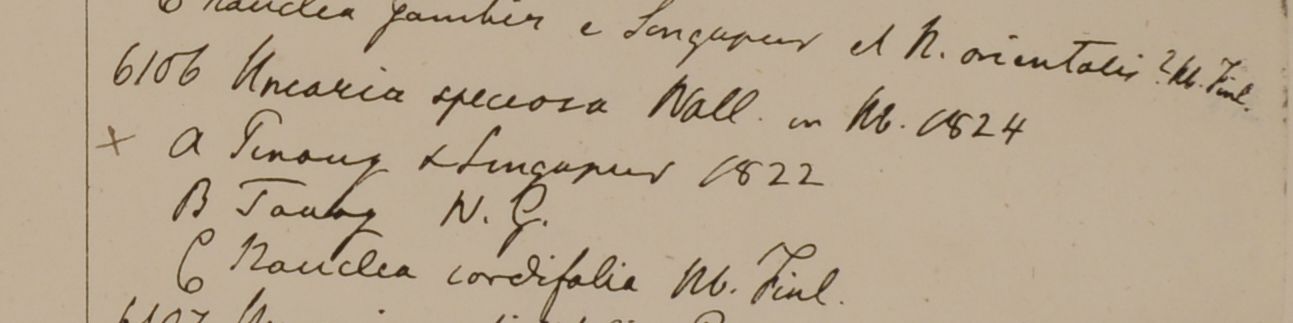 C Nauclea gambir e Singapur et N. orientalis? Hb. Finl.
6106 Uncaria speciosa Wall. in Hb. 1824
+ a Penang & Singapur 1822
B Tavoy W. G.
C Nauclea cordifolia Hb. Finl.
6107